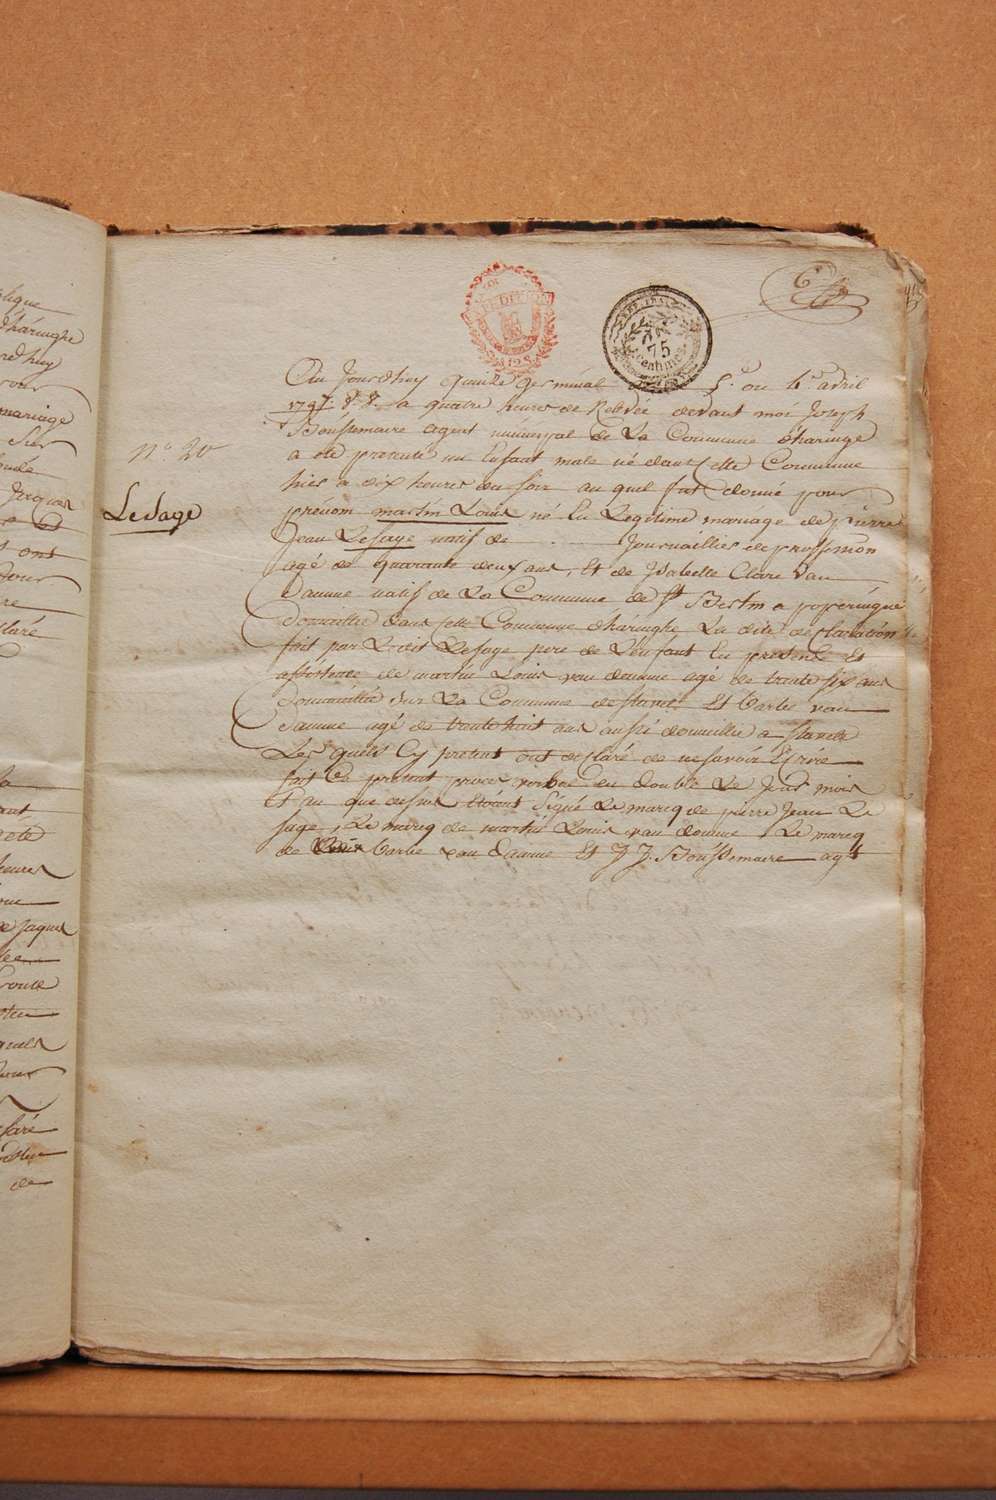 Au Jourdhuy quinze germinal 5.e ou 4.e avril
1797. V. S. a quatre heures de Relevée devant moi Joseph
Boussemaire agent municipal de La Commune d'haringe
a été presenté un Enfant male né dans Cette Commune
hier a dix heures du soir au quel fut donné pour
prénom martin Louis né En Legitime mariage de pierre
Jean Lesage natif de Journaillier de proffession
agé de quarante deux ans, Et de Isabelle Claire van
Daume natif de La Commune de St Bertin a poperingue
Domicilié dans Cette Commune d'haringhe La dite declaration
fait par Ledit Lesage pere de L'enfant En presence Et
assistence de martin Louis van doume agé de trente six ans
Domicilié sur La Commune de stavele Et Barbe van
Daume agé de trente huit ans aussi domicilié a stavele
Les quels Cy present ont declaré de ne savoir Ecrire
fait Le present procés verbal en double Le Jour mois
Et an que dessus Etoient Signé Le marcq de pierre Jean Le
sage, Le marcq de martin Louis van doume Le marcq
de Barbe van Daume Et J J. Boussemaire agt
n.o 20
LeSage
75
centimes
lique
d'haringhe
mariage
Jacques
ont
claré
a été
heures
de Jaques
quels
claré
de